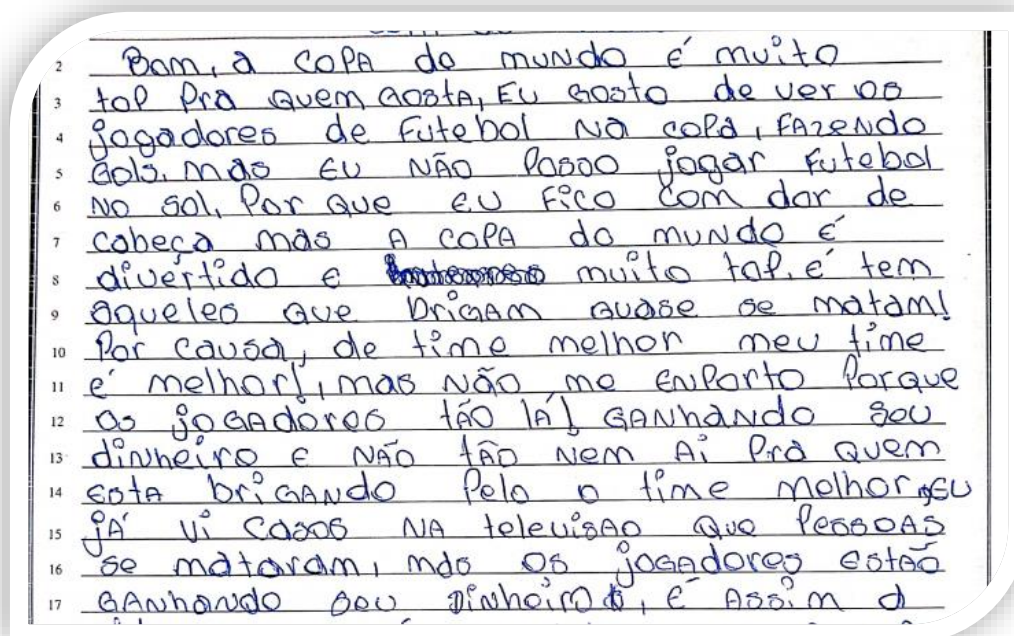 2 Bom, a COPA do mundo é muito
3 top Pra quem gosta, Eu gosto de ver os
4 jogadores de Futebol na copa, Fazendo
5 Gols. mas Eu NÃO Posso jogar Futebol
6 No sol, Por que eu Fico com dor de
7 cabeça mas A COPA do mundo é
8 divertido e muito top. é tem
9 aqueles que brigam quase se matam!
10 Por causa, de time melhor meu time
11 é melhor!, mas Não me Enporto Porque
12 os jogadores tão lá! Ganhando seu
13 dinheiro e NÃO tão nem Ai Pra quem
14 esta brigando Pelo o time melhor, eu
15 já vi casos NA televisão que Pessoas
16 se mataram, mas os jogadores estão
17 Ganhando seu Dinheiro, É Assim a